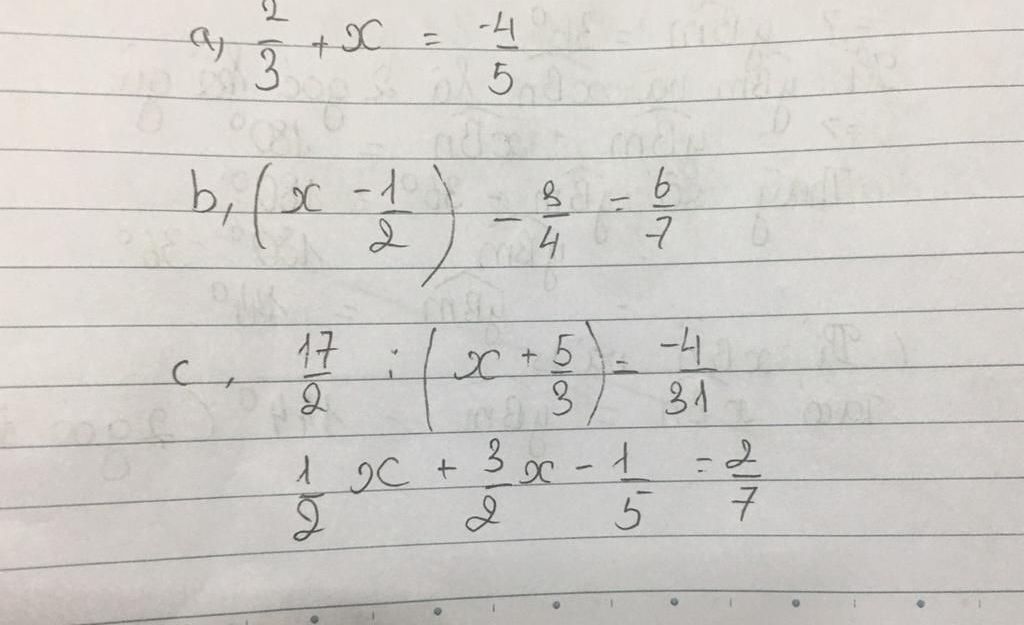 a, 2/3 + x = -4/5
b, (x - 1/2) - 3/4 = 6/7
c, 17/2 : (x + 5/3) = -4/31
1/2 x + 3/2 x - 1/5 = 2/7